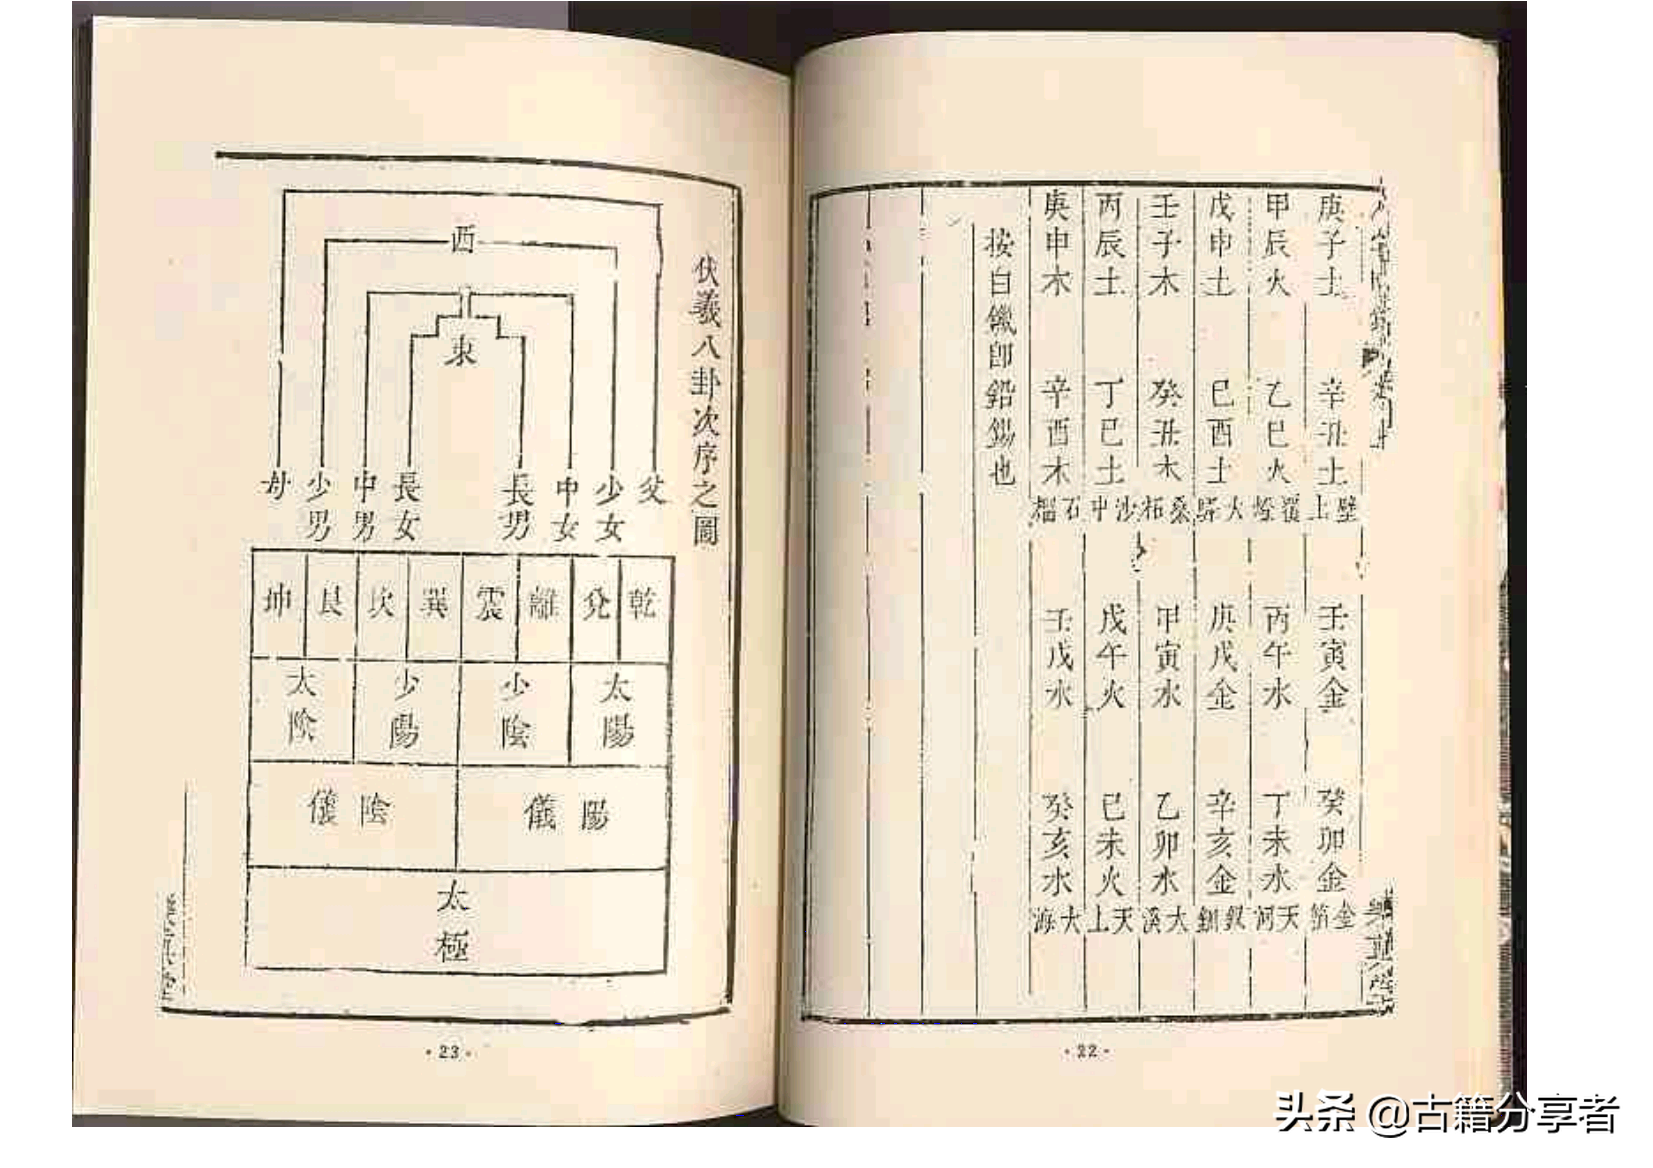 庚子土 辛丑土 壁上 壬寅金 癸卯金 金箔
甲辰火 乙巳火 覆燈 丙午水 丁未水 天河
戊申土 己酉土 大驛 庚戌金 辛亥金 釵釧
壬子木 癸丑木 桑柘 甲寅水 乙卯水 大溪
丙辰土 丁巳土 沙中 戊午火 己未火 天上
庚申木 辛酉木 石榴 壬戌水 癸亥水 大海
按白鑞即鉛錫也
·22·
伏羲八卦次序之圖
西
東
父 少女 中女 長男 長女 中男 少男 母
乾 兌 離 震 巽 坎 艮 坤
太陽 少陰 少陽 太陰
陽儀 陰儀
太極
·23·
头条 @古籍分享者